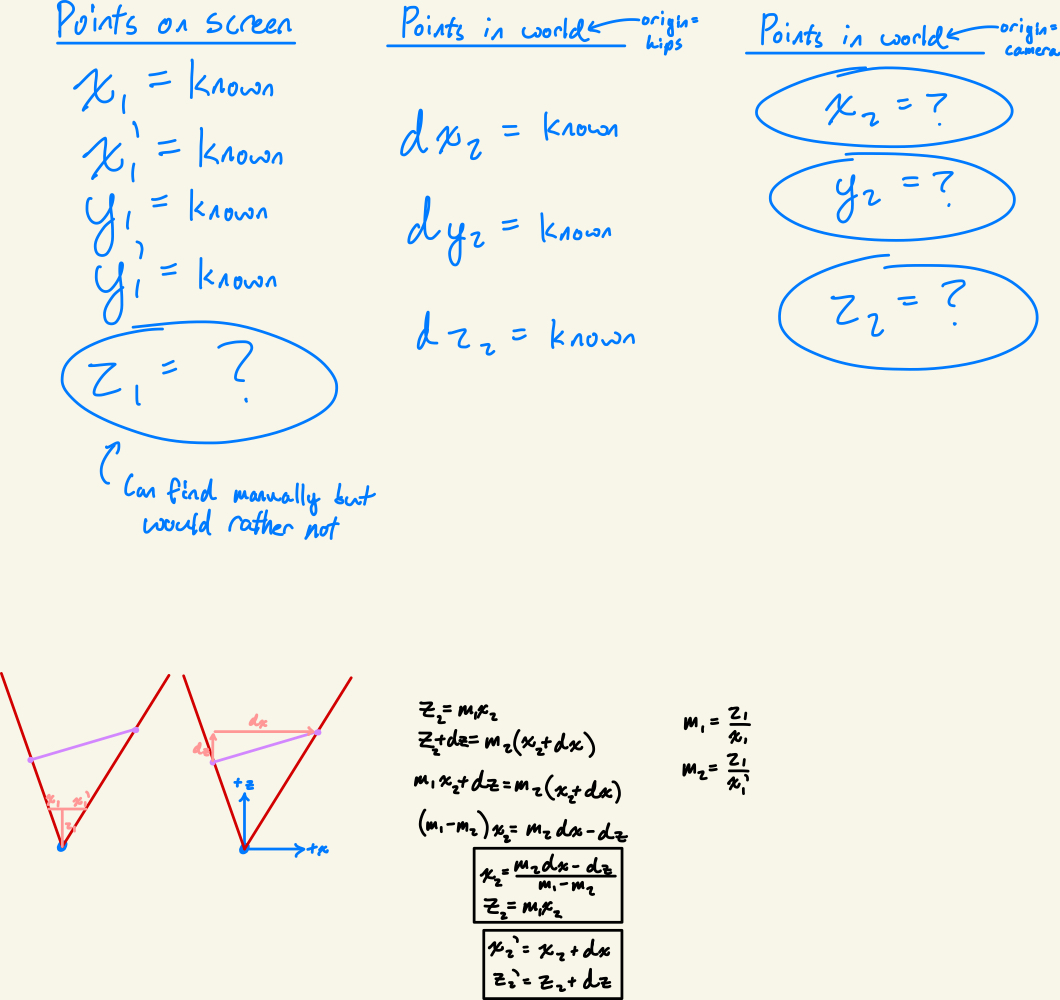 Points on screen
x₁ = known
x₁' = known
y₁ = known
y₁' = known
z₁ = ?
Can find manually but
would rather not
Points in world
origin=
hips
dx₂ = known
dy₂ = known
dz₂ = known
Points in world
origin=
camera
x₂ = ?
y₂ = ?
z₂ = ?
x₁ x₁'
z₁
dx
dz
+z
+x
z₂=m₁x₂
z₂+dz=m₂(x₂+dx)
m₁x₂+dz=m₂(x₂+dx)
(m₁-m₂)x₂=m₂dx-dz
x₂=(m₂dx-dz)/(m₁-m₂)
z₂=m₁x₂
x₂'=x₂+dx
z₂'=z₂+dz
m₁=z₁/x₁
m₂=z₁/x₁'